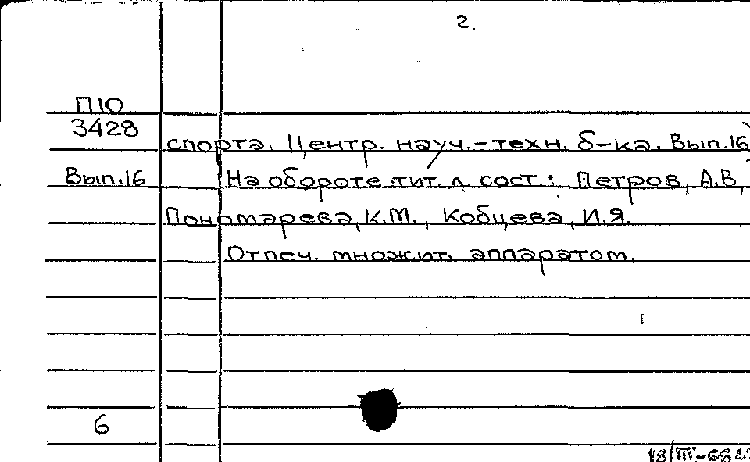 2.
П10
3428
спорта. Центр. науч.-техн. б-ка. Вып.16)
Вып.16
На обороте тит. л. сост.: Петров, А.В.,
Пономарева, К.М., Кобцева, И.Я.
Отпеч. множит. аппаратом.
6